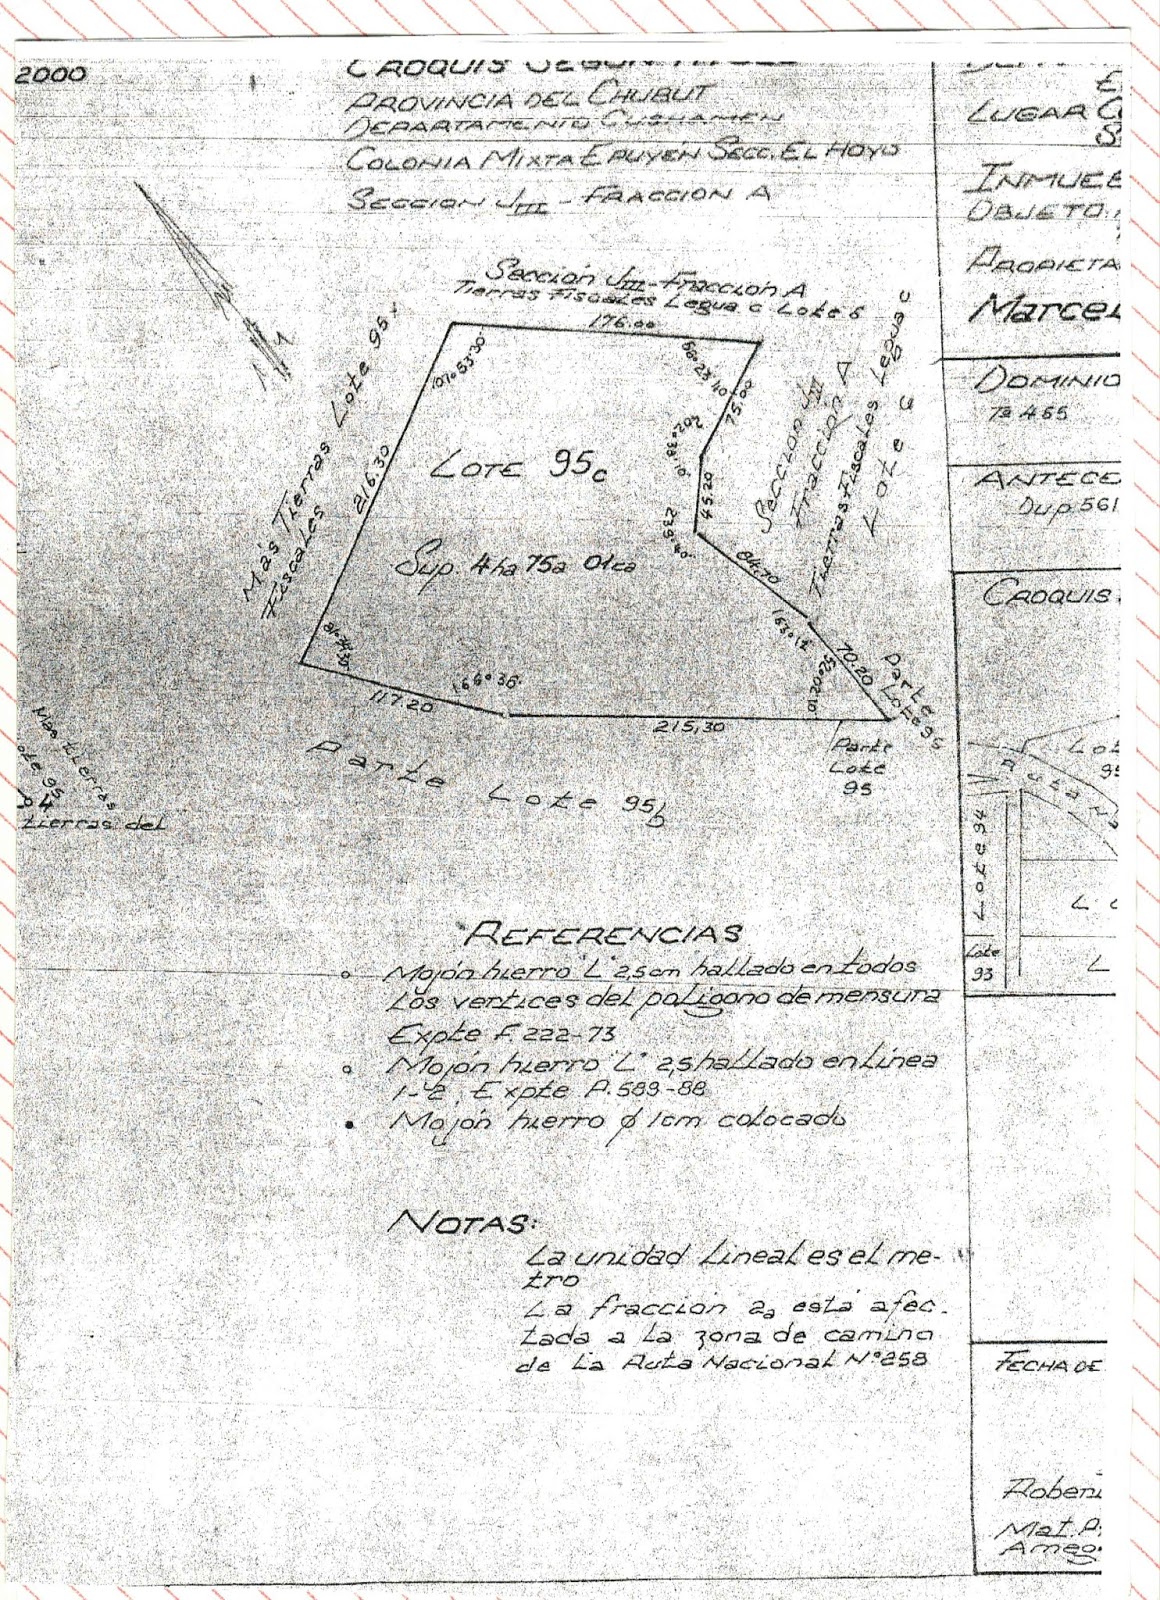 2000
CROQUIS SEGUN TITULO
PROVINCIA DEL CHUBUT
DEPARTAMENTO CUSHAMEN
COLONIA MIXTA EPUYEN SECC. EL HOYO
SECCION JIII - FRACCION A
Sección JIII - Fracción A
Tierras Fiscales Legua c Lote 6
176.00
107°53'30"
68°23'40"
75.00
Más Tierras Lote 95
Fiscales
216.30
LOTE 95c
Sup. 4ha 75a 01ca
45.20
84.70
163°12'
70.20
Sección JIII
Fracción A
Tierras Fiscales Legua c
Lote 6
117.20
166°36'
215,30
Parte
Lote 95
Parte
Lote
95
Parte Lote 95b
Mas tierras
tierras del
REFERENCIAS
Mojón hierro "L" 2,5cm hallado en todos
Los vertices del poligono de mensura
Expte F. 222-73
Mojón hierro "L" 2,5 hallado en Línea
1-2, Expte P. 589-88
Mojón hierro ϕ 1cm colocado
NOTAS:
La unidad Lineal es el me-
tro
La fracción 2a está afec-
tada a la zona de camino
de La Ruta Nacional N°258
LUGAR
INMUEB
OBJETO:
PROPIETA
Marcel
DOMINIO
Tº 465
ANTECE
Dup. 561
CROQUIS
Lot
95
Ruta N
Lote 94
Lote
93
L
FECHA DE
Rober
Mat. P.
Ameg